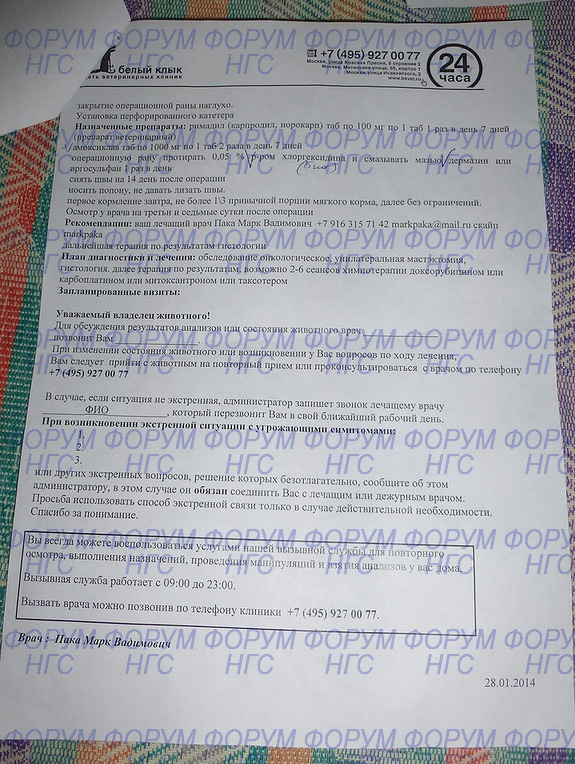 белый клык
сеть ветеринарных клиник
+7 (495) 927 00 77
Москва, улица Красная Пресня, 5 строение 1
Москва, Митинская улица, 55, корпус 1
Москва, улица Исаковского, 2
www.bkvet.ru
24
часа
закрытие операционной раны наглухо.
Установка перфорированного катетера
Назначенные препараты: римадил (карпродил, норокарп) таб по 100 мг по 1 таб 1 раз в день 7 дней
(препарат ветеринарный)
амоксиклав таб по 1000 мг по 1 таб 2 раза в день 7 дней
операционную рану протирать 0,05 % р-ром хлоргексидина и смазывать мазью дермазин или
аргосульфан 1 раз в день
снять швы на 14 день после операции
носить попону, не давать лизать швы.
первое кормление завтра, не более 1\3 привычной порции мягкого корма, далее без ограничений.
Осмотр у врача на третьи и седьмые сутки после операции
Рекомендации: ваш лечащий врач Пака Марк Вадимович +7 916 315 71 42 markpaka@mail.ru скайп
markpaka
дальнейшая терапия по результатам гистологии
План диагностики и лечения: обследование онкологическое, унилатеральная мастэктомия,
гистология. далее терапия по результатам, возможно 2-6 сеансов химиотерапии доксорубицином или
карбоплатином или митоксантроном или таксотером
Запланированные визиты:
Уважаемый владелец животного!
Для обсуждения результатов анализов или состояния животного врач
позвонит Вам
При изменении состояния животного или возникновении у Вас вопросов по ходу лечения,
Вам следует прийти с животным на повторный прием или проконсультироваться с врачом по телефону
+7 (495) 927 00 77
В случае, если ситуация не экстренная, администратор запишет звонок лечащему врачу
ФИО , который перезвонит Вам в свой ближайший рабочий день.
При возникновении экстренной ситуации с угрожающими симптомами:
1.
2.
3.
или других экстренных вопросов, решение которых безотлагательно, сообщите об этом
администратору, в этом случае он обязан соединить Вас с лечащим или дежурным врачом.
Просьба использовать способ экстренной связи только в случае действительной необходимости.
Спасибо за понимание.
Вы всегда можете воспользоваться услугами нашей вызывной службы для повторного
осмотра, выполнения назначений, проведения манипуляций и взятия анализов у вас дома.
Вызывная служба работает с 09:00 до 23:00.
Вызвать врача можно позвонив по телефону клиники +7 (495) 927 00 77.
Врач : Пака Марк Вадимович
28.01.2014
ФОРУМ ФОРУМ ФОРУМ ФОРУМ ФОРУМ ФОРУМ
НГС НГС НГС НГС НГС НГС